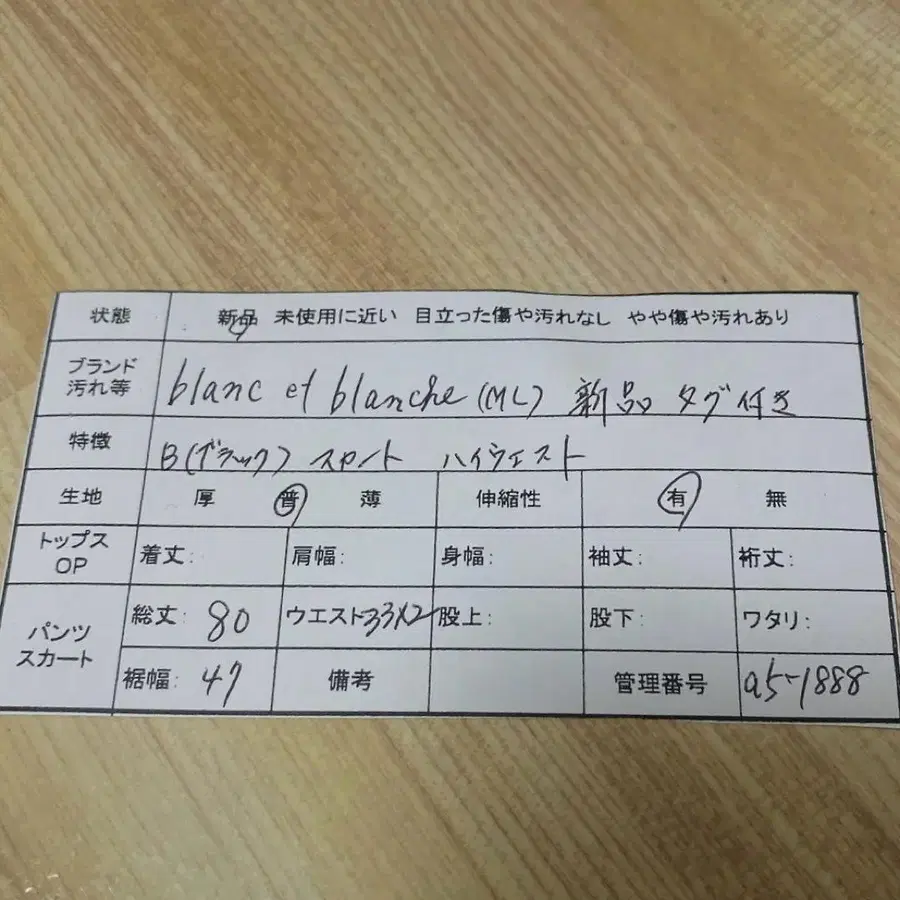 状態 新品 未使用に近い 目立った傷や汚れなし やや傷や汚れあり
ブランド 汚れ等 blanc et blanche (ML) 新品 タグ付き
特徴 B(ブラック) スカート ハイウエスト
生地 厚 普 薄 伸縮性 有 無
トップス OP 着丈: 肩幅: 身幅: 袖丈: 裄丈:
パンツ スカート 総丈: 80 ウエスト33X2 股上: 股下: ワタリ:
裾幅: 47 備考 管理番号 a5-1888